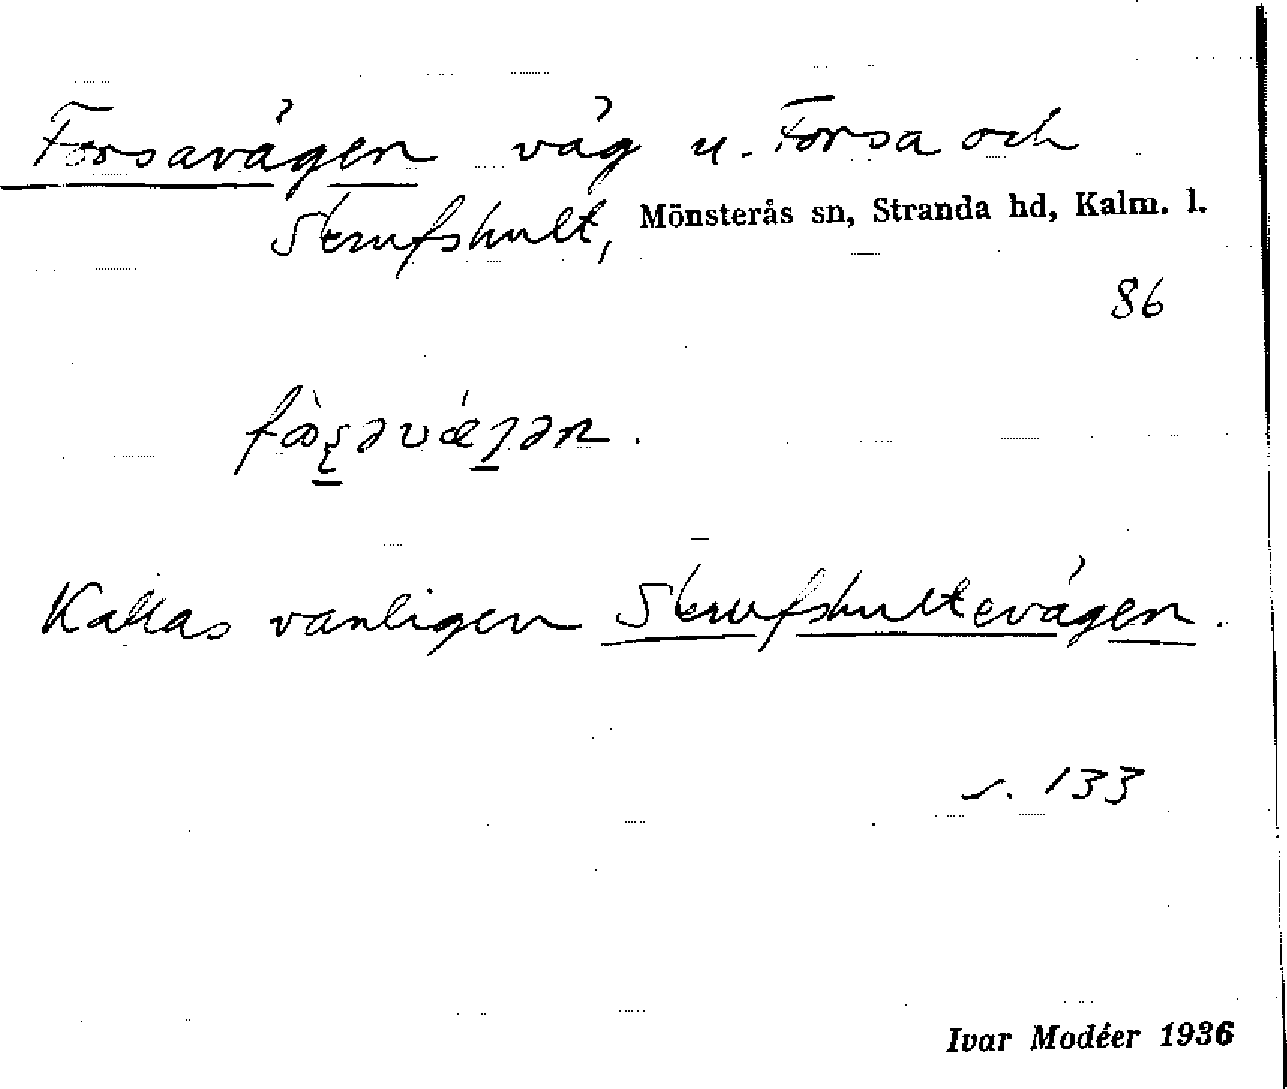 Forsavägen väg u. Forsa och
Skrufshult, Mönsterås sn, Stranda hd, Kalm. l.
86
Kallas vanligen Skrufshultevägen.
s. 133
Ivar Modéer 1936